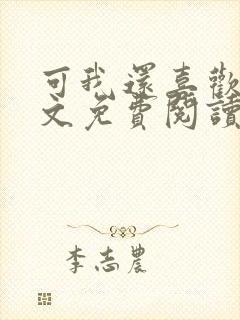 可我還喜歡
文免費閱讀
李志農